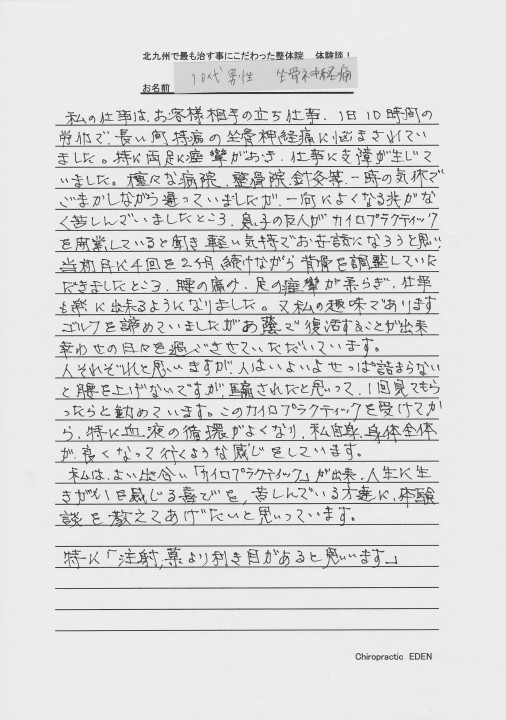 北九州で最も治す事にこだわった整体院　体験談！
お名前　10代男性　坐骨神経痛
私の仕事は、お客様相手の立ち仕事、1日10時間の
労働で、長い間持病の坐骨神経痛に悩まされてい
ました。特に両足に痙攣がおき、仕事に支障が生じて
いました。種々な病院、整骨院、針灸等、一時の気休めで
ごまかしながら通っていましたが、一向によくなる兆がな
く苦しんでいましたところ、息子の友人がカイロプラクティック
を開業していると聞き軽い気持でお世話になろうと思い
当初月に4回を2ヶ月続けながら背骨を調整していた
だきましたところ、腰の痛み、足の痙攣が柔らぎ、仕事
も楽に出来るようになりました。又私の趣味であります
ゴルフを諦めていましたがお蔭で復活することが出来
幸わせの日々を過ごさせていただいています。
人それぞれと思いますが、人はいよいよせっぱ詰まらない
と腰を上げないですが、騙されたと思って、1回見てもら
ったらと勧めています。このカイロプラクティックを受けてか
ら、特に血液の循環がよくなり、私自身、身体全体
が、良くなって行くような感じをしています。
私は、よい出会い「カイロプラクティック」が出来、人生に生
きがいを感じる喜びを、苦しんでいる方達に、体験
談を教えてあげたいと思っています。
特に「注射、薬より利き目があると思います」
Chiropractic EDEN